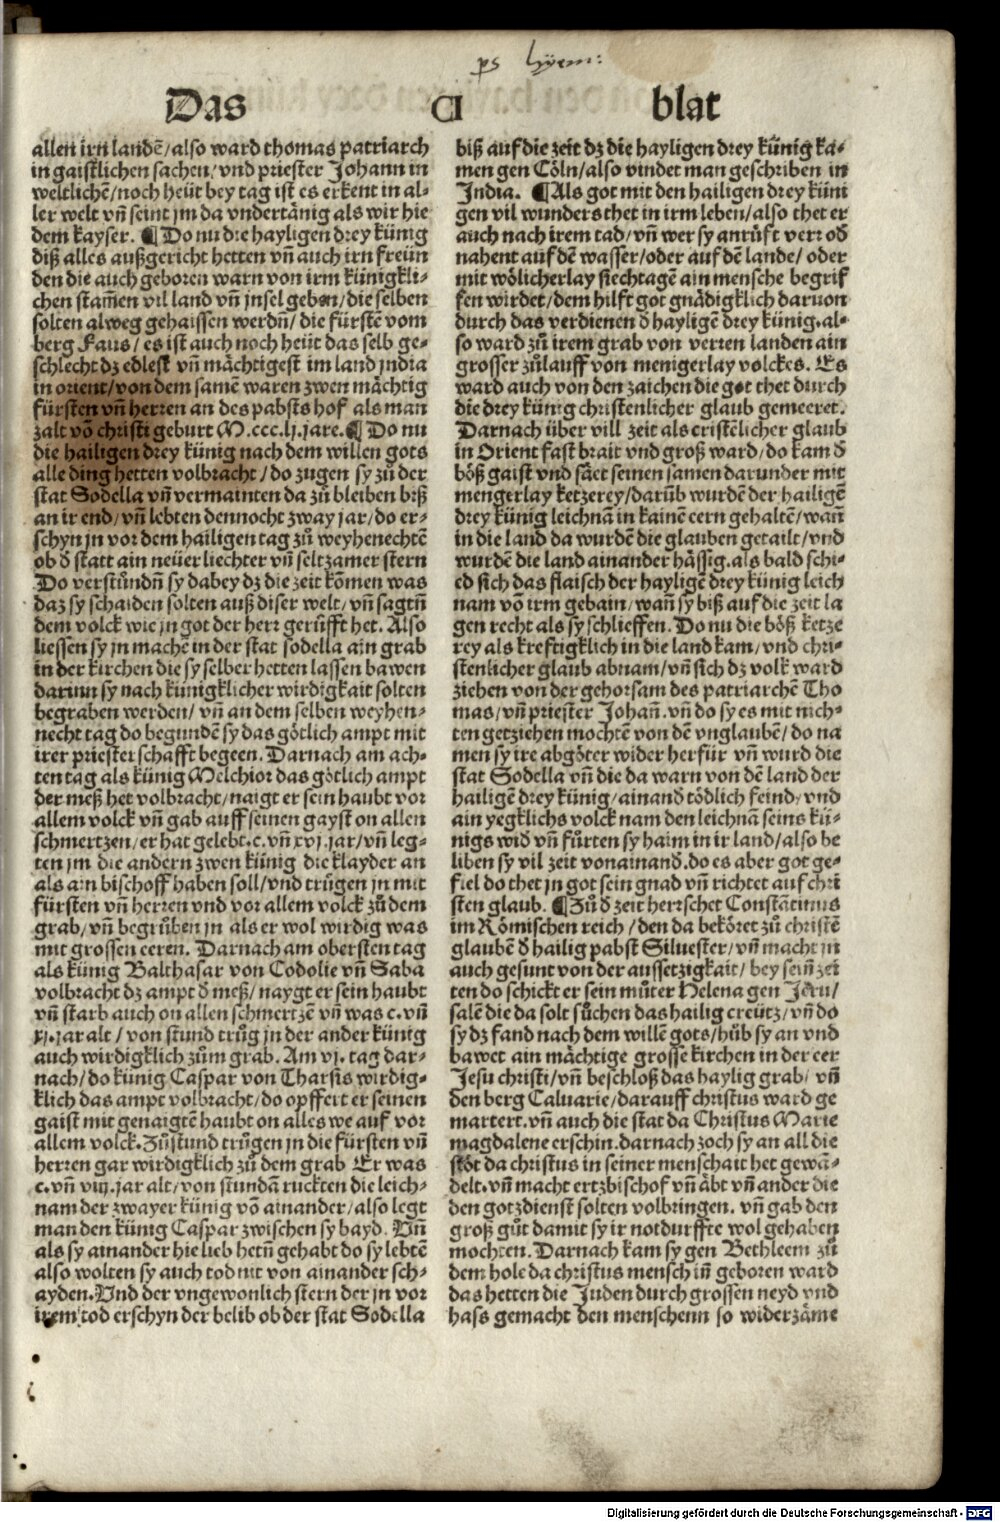 ps hyem:
Das CI blat
allen irn landē/also ward thomas patriarch
in gaistlichen sachen/vnd priester Johann in
weltlichē/noch heüt bey tag ist es erkent in al⸗
ler welt vñ seint jm da vndertånig als wir hie
dem kayser. ¶ Do nu die hayligen drey künig
diß alles außgericht hetten vñ auch irn freün
den die auch geboren warn von irm künigkli⸗
chen stam̄en vil land vñ jnsel geben/die selben
solten alweg gehaissen werdn̄/ die fürstē vom
berg Faus/ es ist auch noch heüt das selb ge⸗
schlecht dz edlest vñ måchtigest im land jndia
in orient/von dem samē waren zwen måchtig
fürsten vñ herren an des pabsts hof als man
zalt vō christi geburt M.ccc.lj.jare.¶ Do nu
die hailigen drey künig nach dem willen gots
alle ding hetten volbracht/do zugen sy zů der
stat Sodella vñ vermainten da zů bleiben biß
an ir end/vñ lebten dennocht zway jar/do er⸗
schyn jn vor dem hailigen tag zů weyhenechtē
ob d̄ statt ain neüer liechter vñ seltzamer stern
Do verstůndn̄ sy dabey dz die zeit kōmen was
daz sy schaiden solten auß diser welt/vñ sagtn̄
dem volck wie jn got der herr gerůfft het. Also
liessen sy jn machē in der stat sodella ain grab
in der kirchen die sy selber hetten lassen bawen
darinn sy nach künigklicher wirdigkait solten
begraben werden/ vñ an dem selben weyhen⸗
necht tag do begundē sy das götlich ampt mit
irer priesterschafft begeen. Darnach am ach⸗
ten tag als künig Melchior das götlich ampt
der meß het volbracht/naigt er sein haubt vor
allem volck vñ gab auff seinen gayst on allen
schmertzen/er hat gelebt.c.vñ xvj.jar/vñ leg⸗
ten jm die andern zwen künig die klayder an
als ain bischoff haben soll/vnd trůgen jn mit
fürsten vñ herren vnd vor allem volck zů dem
grab/vñ begrůben jn als er wol wirdig was
mit grossen eeren. Darnach am obersten tag
als künig Balthasar von Godolie vñ Saba
volbracht dz ampt d̄ meß/naygt er sein haubt
vñ starb auch on allen schmertzē vñ was c.vñ
xj.jar alt/ von stund trůg jn der ander künig
auch wirdigklich zům grab. Am vj. tag dar⸗
nach/do künig Caspar von Tharsis wirdig⸗
klich das ampt volbracht/do opffert er seinen
gaist mit genaigtē haubt on alles we auf vor
allem volck.Zůstund trůgen jn die fürsten vñ
herren gar wirdigklich zů dem grab Er was
c.vñ viij.jar alt/von stundā ruckten die leich⸗
nam der zwayer künig vō ainander/also legt
man den künig Caspar zwischen sy bayd. Vñ
als sy ainander hie lieb hetn̄ gehabt do sy lebtē
also wolten sy auch tod nit von ainander sch⸗
ayden.Vnd der vngewonlich stern der jn vor
irem tod erschyn der belib ob der stat Sodella
biß auf die zeit dz die hayligen drey künig ka⸗
men gen Cöln/also vindet man geschriben in
India. ¶Als got mit den hailigen drey küni
gen vil wunders thet in irm leben/also thet er
auch nach irem tad/vñ wer sy anrůft verr od̄
nahent auf dē wasser/oder auf dē lande/ oder
mit wölicherlay siechtagē ain mensche begrif
fen wirdet/dem hilft got gnådigklich daruon
durch das verdienen d̄ hayligē drey künig.al⸗
so ward zů irem grab von verren landen ain
grosser zůlauff von menigerlay volckes. Es
ward auch von den zaichen die got thet durch
die drey künig christenlicher glaub gemeeret.
Darnach über vill zeit als cristēlicher glaub
in Orient fast brait vnd groß ward/do kam d̄
böß gaist vnd sået seinen samen darunder mit
mengerlay ketzerey/darūb wurdē der hailigē
drey künig leichnā in kainē eern gehaltē/wañ
in die land da wurdē die glauben getailt/vnd
wurdē die land ainander håssig.als bald schi⸗
ed sich das flaisch der hayligē drey künig leich
nam vō irm gebain/wañ sy biß auf die zeit la
gen recht als sy schlieffen. Do nu die böß ketze
rey als kreftigklich in die land kam/vnd chri⸗
stenlicher glaub abnam/vñ sich dz volk ward
ziehen von der gehorsam des patriarchē Tho
mas/vñ priester Johan̄.vñ do sy es mit nich⸗
ten getziehen mochten von dē vnglaubē/do na
men sy ire abgöter wider herfür vñ wurd die
stat Sodella vñ die da warn von dē land der
hailigē drey künig/ainand̄ tödlich feind/vnd
ain yegklichs volck nam den leichnā seins kü⸗
nigs wid̄ vñ fůrten sy haim in ir land/also be
liben sy vil zeit vonainand̄.do es aber got ge⸗
fiel do thet jn got sein gnad vñ richtet auf chri
sten glaub. ¶Zů d̄ zeit herrschet Constātinus
im Römischen reich/den da bekōret zů christē
glaubē d̄ hailig pabst Siluester/vñ macht jn
auch gesunt von der aussetzigkait/ bey sein̄ zei
ten do schickt er sein můter Helena gen Jeru/
salē die da solt sůchen das hailig creütz/vñ do
sy dz fand nach dem willē gots/hůb sy an vnd
bawet ain måchtige grosse kirchen in der eer
Jesu christi/vñ beschloß das haylig grab/ vñ
den berg Caluarie/darauff christus ward ge
martert.vñ auch die stat da Christus Marie
magdalene erschin.darnach zoch sy an all die
stöt da christus in seiner menschait het gewā⸗
delt.vñ macht ertzbischof vñ åbt vñ ander die
den gotzdienst solten volbringen. vñ gab den
groß gůt damit sy ir notdurffte wol gehaben
mochten. Darnach kam sy gen Bethleem zů
dem hole da christus mensch in̄ geboren ward
das hetten die Juden durch grossen neyd vnd
hass gemacht den menschenn so widerzåme
Digitalisierung gefördert durch die Deutsche Forschungsgemeinschaft - DFG